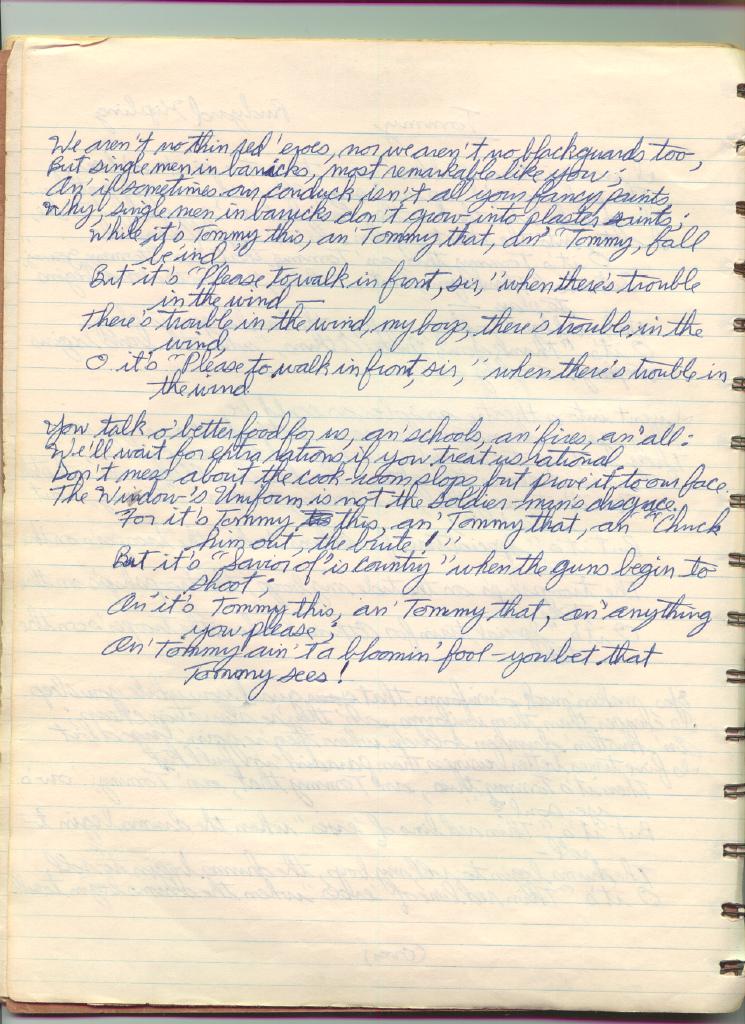 We aren't no thin red 'eroes, nor we aren't no blackguards too,
But single men in barricks, most remarkable like you;
An' if sometimes our conduck isn't all your fancy paints,
Why, single men in barricks don't grow into plaster saints;
While it's Tommy this, an' Tommy that, an' "Tommy, fall
be'ind,"
But it's "Please to walk in front, sir," when there's trouble
in the wind —
There's trouble in the wind, my boys, there's trouble in the
wind,
O it's "Please to walk in front, sir," when there's trouble in
the wind.
You talk o' better food for us, an' schools, an' fires, an' all:
We'll wait for extra rations if you treat us rational.
Don't mess about the cook-room slops, but prove it to our face
The Window's Uniform is not the soldier-man's disgrace.
For it's Tommy this, an' Tommy that, an' "Chuck
him out, the brute!"
But it's "Savior of 'is country" when the guns begin to
shoot;
An' it's Tommy this, an' Tommy that, an' anything
you please;
An' Tommy ain't a bloomin' fool – you bet that
Tommy sees!